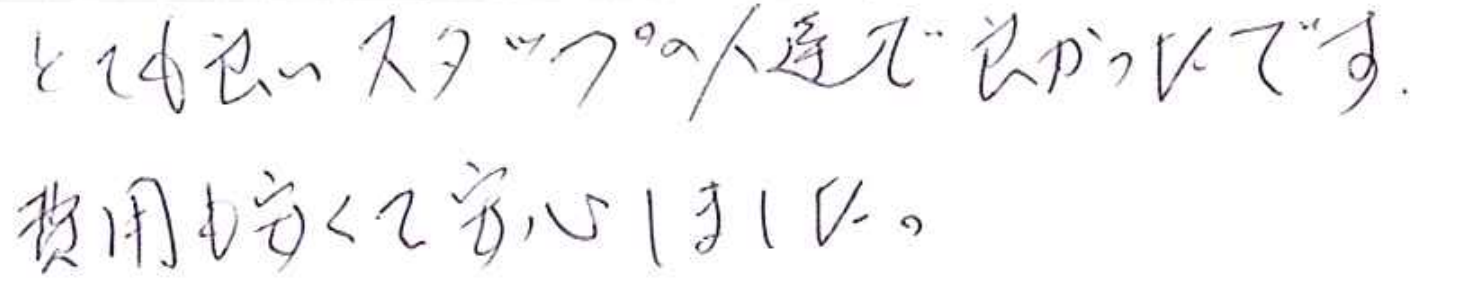 とても良いスタップの人達で良かったです.
費用も安くて安心しました。